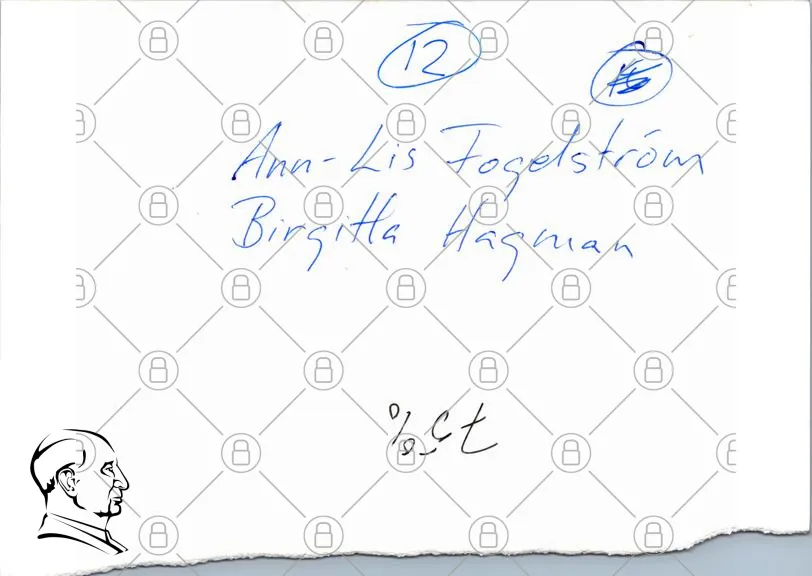 12
Ann-Lis Fogelström
Birgitta Hagman